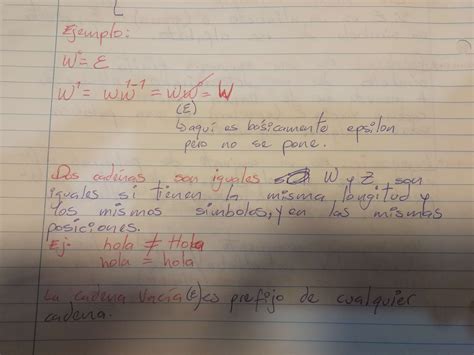 Ejemplo:
W⁰ = ε
W¹ = WW¹⁻¹ = WW⁰ = W
(ε)
↳aquí es básicamente epsilon
pero no se pone.
Dos cadenas son iguales W y Z son
iguales si tienen la misma longitud y
los mismos simbolos, y en las mismas
posiciones.
Ej: hola ≠ Hola
hola = hola
La cadena vacía (ε) es prefijo de cualquier
cadena.